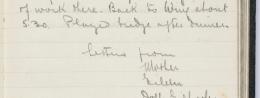 of work there. Back to Wing about
5.30. Played bridge after dinner
Letters from
Mother
Eileen